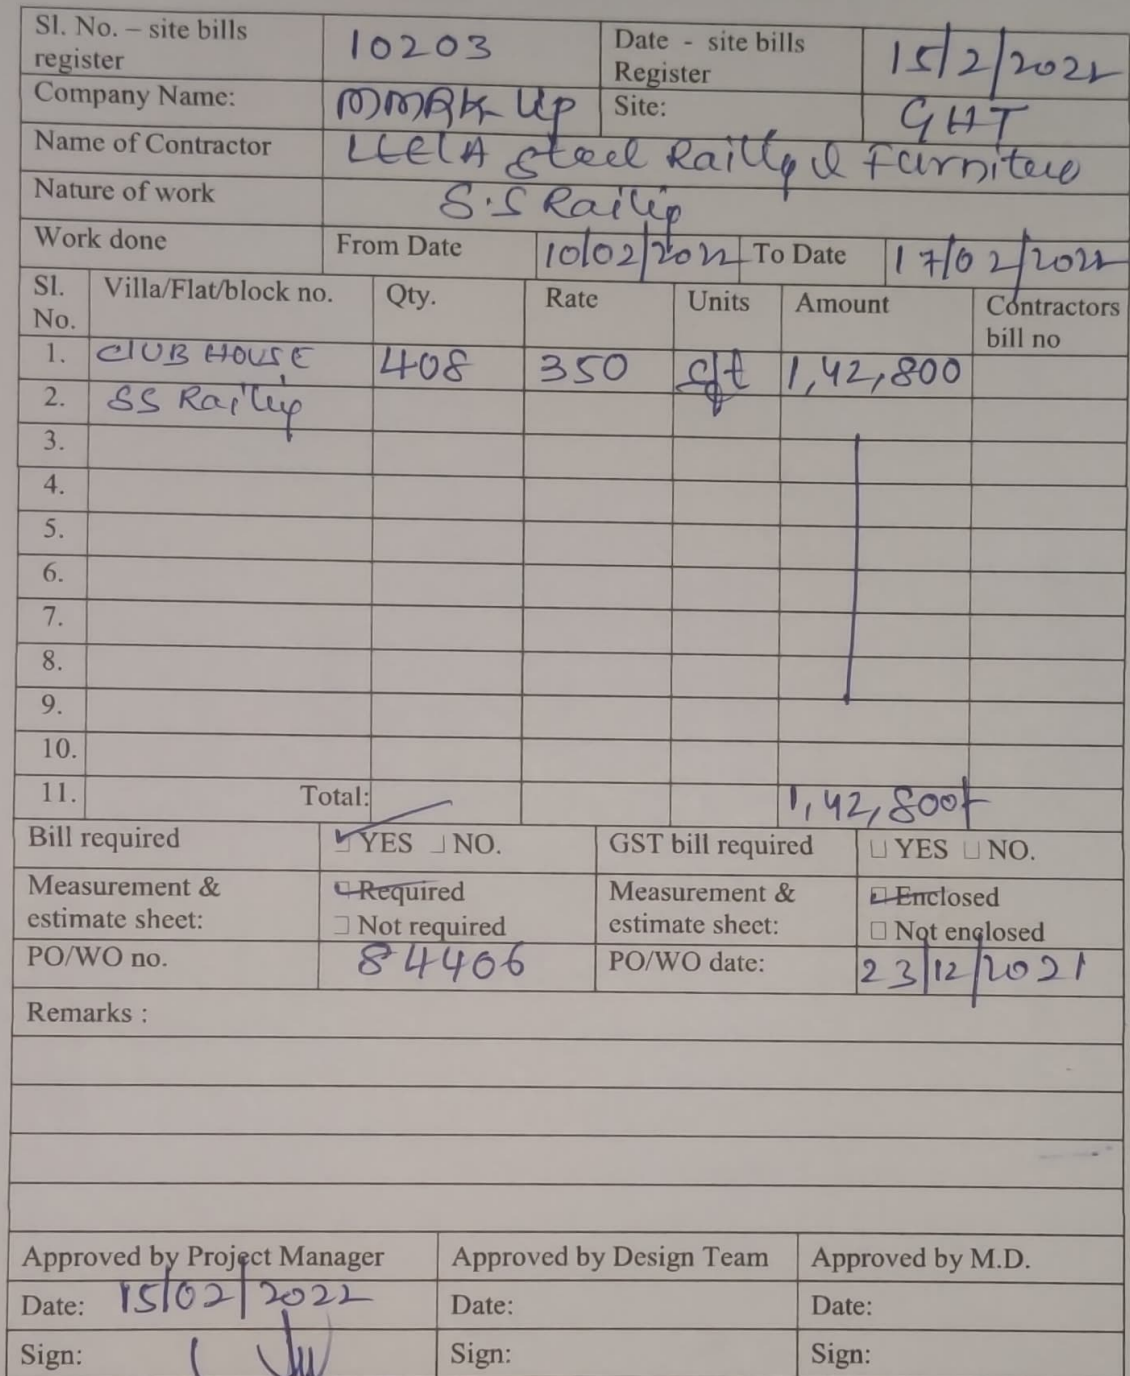 Sl. No. – site bills register 10203 Date - site bills Register 15/2/2022
Company Name: MMRK Up Site: GHT
Name of Contractor LEELA Steel Railing & Furniture
Nature of work S.S Railing
Work done From Date 10/02/2022 To Date 17/02/2022
Sl. No. Villa/Flat/block no. Qty. Rate Units Amount Contractors bill no
1. CLUB HOUSE 408 350 sft 1,42,800
2. SS Railing
3.
4.
5.
6.
7.
8.
9.
10.
11. Total: 1,42,800/-
Bill required YES NO. GST bill required YES NO.
Measurement & estimate sheet: Required Not required Measurement & estimate sheet: Enclosed Not enclosed
PO/WO no. 84406 PO/WO date: 23/12/2021
Remarks :
Approved by Project Manager Approved by Design Team Approved by M.D.
Date: 15/02/2022 Date: Date:
Sign: Sign: Sign: